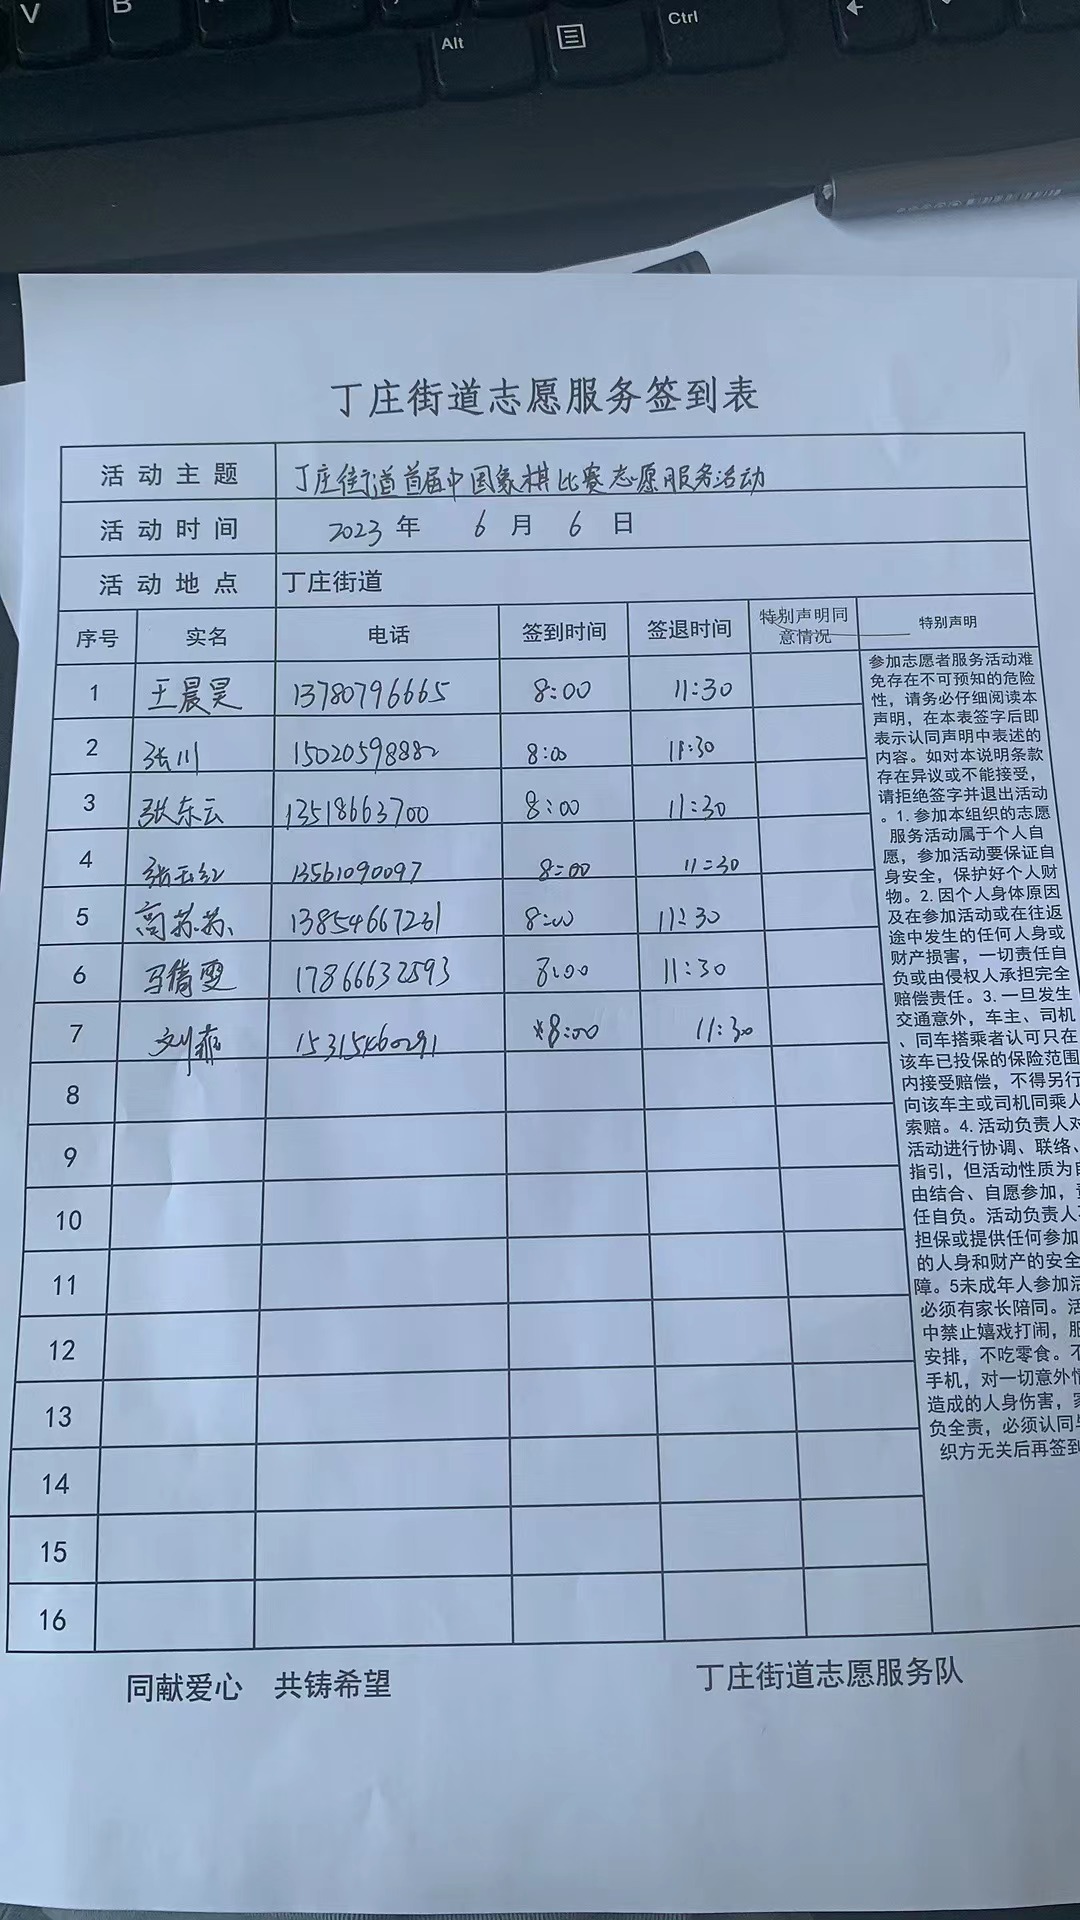 V
B
Alt
Ctrl
丁庄街道志愿服务签到表
活动主题 丁庄街道首届中国象棋比赛志愿服务活动
活动时间 2023年 6月 6日
活动地点 丁庄街道
序号 实名 电话 签到时间 签退时间 特别声明同意情况 特别声明
1 王晨昊 13780796665 8:00 11:30
2 张川 15020598882 8:00 11:30
3 张东云 13518663700 8:00 11:30
4 张玉红 13561090097 8:00 11:30
5 高苏苏 13854667231 8:00 11:30
6 马倩雯 17866632593 8:00 11:30
7 刘 15315460291 8:00 11:30
8
9
10
11
12
13
14
15
16
参加志愿者服务活动难
免存在不可预知的危险
性，请务必仔细阅读本
声明，在本表签字后即
表示认同声明中表述的
内容。如对本说明条款
存在异议或不能接受，
请拒绝签字并退出活动
。1.参加本组织的志愿
服务活动属于个人自
愿，参加活动要保证自
身安全，保护好个人财
物。2.因个人身体原因
及在参加活动或在往返
途中发生的任何人身或
财产损害，一切责任自
负或由侵权人承担完全
赔偿责任。3.一旦发生
交通意外，车主、司机
、同车搭乘者认可只在
该车已投保的保险范围
内接受赔偿，不得另行
向该车主或司机同乘人
索赔。4.活动负责人对
活动进行协调、联络、
指引，但活动性质为自
由结合、自愿参加，责
任自负。活动负责人不
担保或提供任何参加
的人身和财产的安全
障。5未成年人参加活
必须有家长陪同。活
中禁止嬉戏打闹，服
安排，不吃零食。不
手机，对一切意外情
造成的人身伤害，家
负全责，必须认同与
织方无关后再签到
同献爱心 共铸希望
丁庄街道志愿服务队